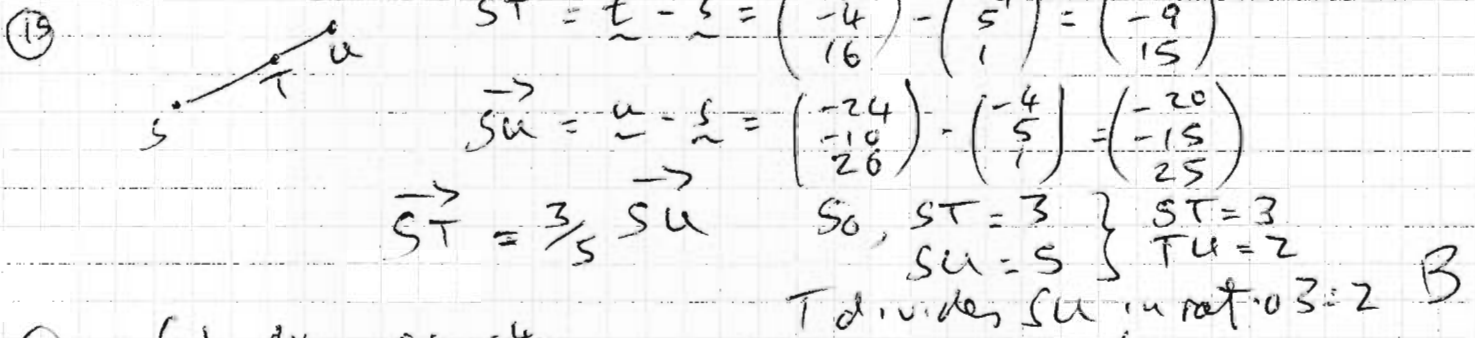 15
S T U
ST = t - s = ( -4 16 ) - ( 5 1 ) = ( -9 15 )
SU = u - s = ( -24 -10 26 ) - ( -4 5 1 ) = ( -20 -15 25 )
ST = 3/5 SU So, ST = 3 } ST = 3
SU = 5 } TU = 2
T divides SU in ratio 3:2 B